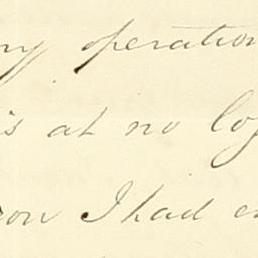 ny operation
is at no log
ron I had en